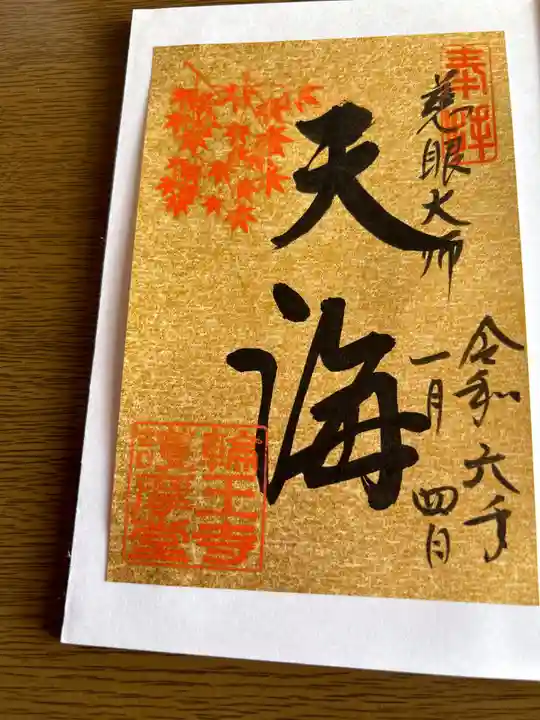 奉拝
慈眼大師
天海
令和六年
一月四日
輪王寺
護摩堂